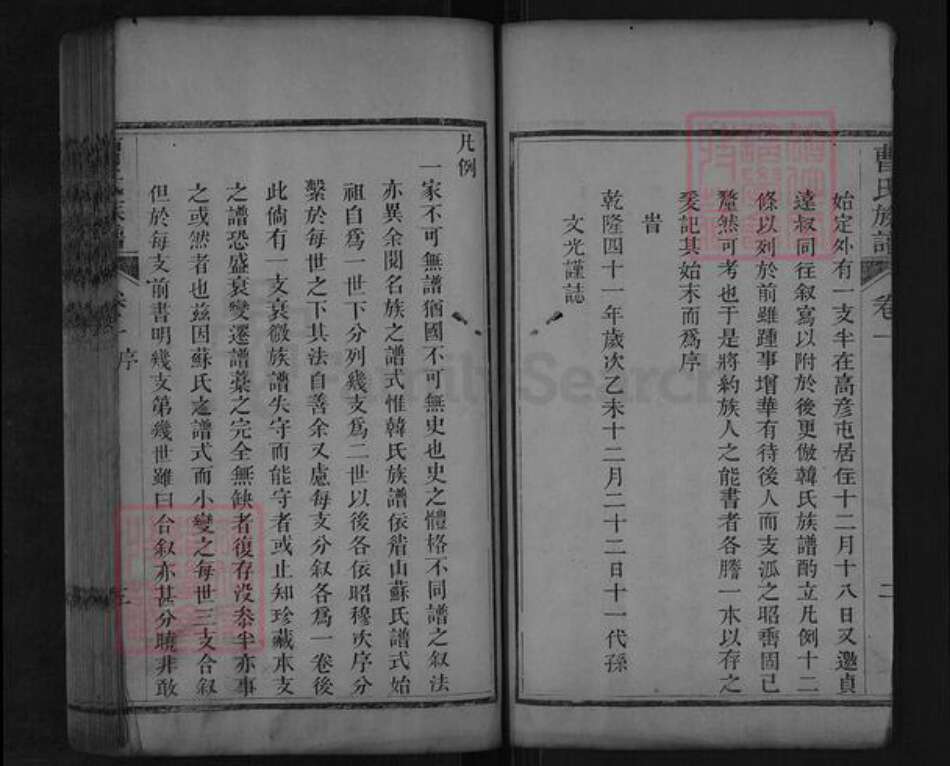 曹氏族譜
卷一
二
始定外有一支半在高彥屯居住十二月十八日又邀貞
達叔同往叙寫以附於後更倣韓氏族譜酌立凡例十二
條以列於前雖踵事增華有待後人而支派之昭晰固已
釐然可考也于是將約族人之能書者各謄一本以存之
爰記其始末而爲序
旹
乾隆四十一年歲次乙未十二月二十二日十一代孫
文光謹誌
凡例
一家不可無譜猶國不可無史也史之體格不同譜之叙法
亦異余閱名族之譜式惟韓氏族譜依眉山蘇氏譜式始
祖自爲一世下分列幾支爲二世以後各依昭穆次序分
繫於每世之下其法自善余又慮每支分叙各爲一卷後
此倘有一支衰微族譜失守而能守者或止知珍藏本支
之譜恐盛衰變遷譜藁之完全無缺者復存没叅半亦事
之或然者也兹因蘇氏之譜式而小變之每世三支合叙
但於每支前書明幾支第幾世雖曰合叙亦甚分曉非敢
序
三
FamilySearch